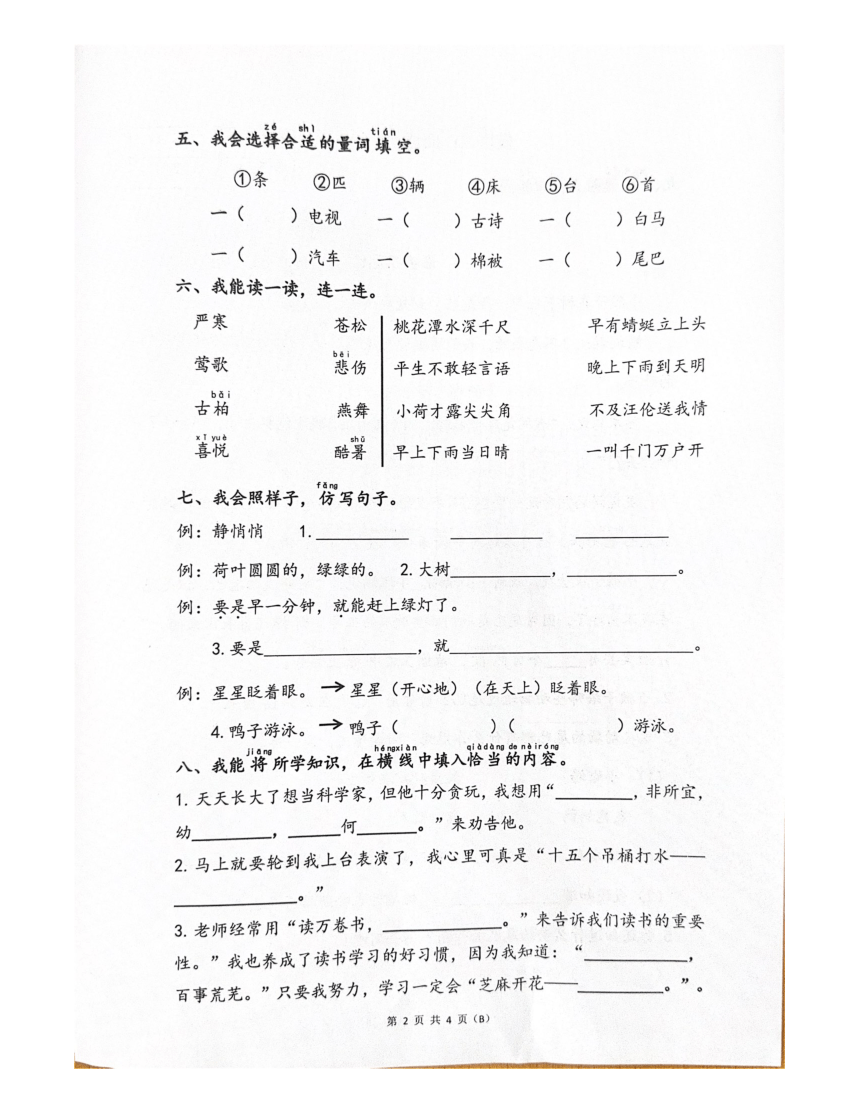 五、我会选择(zé)合适(shì)的量词填(tián)空。
①条 ②匹 ③辆 ④床 ⑤台 ⑥首
一（ ）电视 一（ ）古诗 一（ ）白马
一（ ）汽车 一（ ）棉被 一（ ）尾巴
六、我能读一读，连一连。
严寒 苍松 桃花潭水深千尺 早有蜻蜓立上头
莺歌 悲(bēi)伤 平生不敢轻言语 晚上下雨到天明
古柏(bǎi) 燕舞 小荷才露尖尖角 不及汪伦送我情
喜悦(xǐ yuè) 酷暑(shǔ) 早上下雨当日晴 一叫千门万户开
七、我会照样子，仿(fǎng)写句子。
例：静悄悄 1.__________ __________ __________
例：荷叶圆圆的，绿绿的。 2.大树___________，____________。
例：要是早一分钟，就能赶上绿灯了。
3.要是________________，就__________________________。
例：星星眨着眼。→星星（开心地）（在天上）眨着眼。
4.鸭子游泳。→鸭子（ ）（ ）游泳。
八、我能将(jiāng)所学知识，在横线(héngxiàn)中填入恰当的内容(qiàdàng de nèiróng)。
1. 天天长大了想当科学家，但他十分贪玩，我想用“________，非所宜，
幼________，______何______。”来劝告他。
2. 马上就要轮到我上台表演了，我心里可真是“十五个吊桶打水——
_____________。”
3. 老师经常用“读万卷书，____________。”来告诉我们读书的重要
性。”我也养成了读书学习的好习惯，因为我知道：“___________，
百事荒芜。”只要我努力，学习一定会“芝麻开花——_________。”。
第 2 页 共 4 页（B）